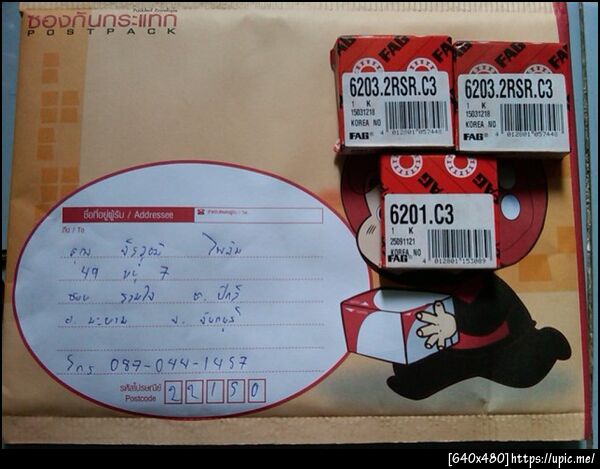 Padded Envelope
ซองกันกระแทก
POSTPACK
FAG
6203.2RSR.C3
1 K
15031218
KOREA NO
FAG
4 012801 057448
FAG
6203.2RSR.C3
1 K
15031218
KOREA NO
FAG
4 012801 057448
FAG
6201.C3
1 K
25091121
KOREA, NO
FAG
4 012801 153089
ชื่อที่อยู่ผู้รับ / Addressee
ถึง / To
คุณ จิรวุฒิ ไพลิน
49 หมู่ 7
ซอย รวมใจ ต. ปัถวี
อ. มะขาม จ. จันทบุรี
โทร 087-044-1457
รหัสไปรษณีย์
Postcode
22150
[640x480]https://upic.me/